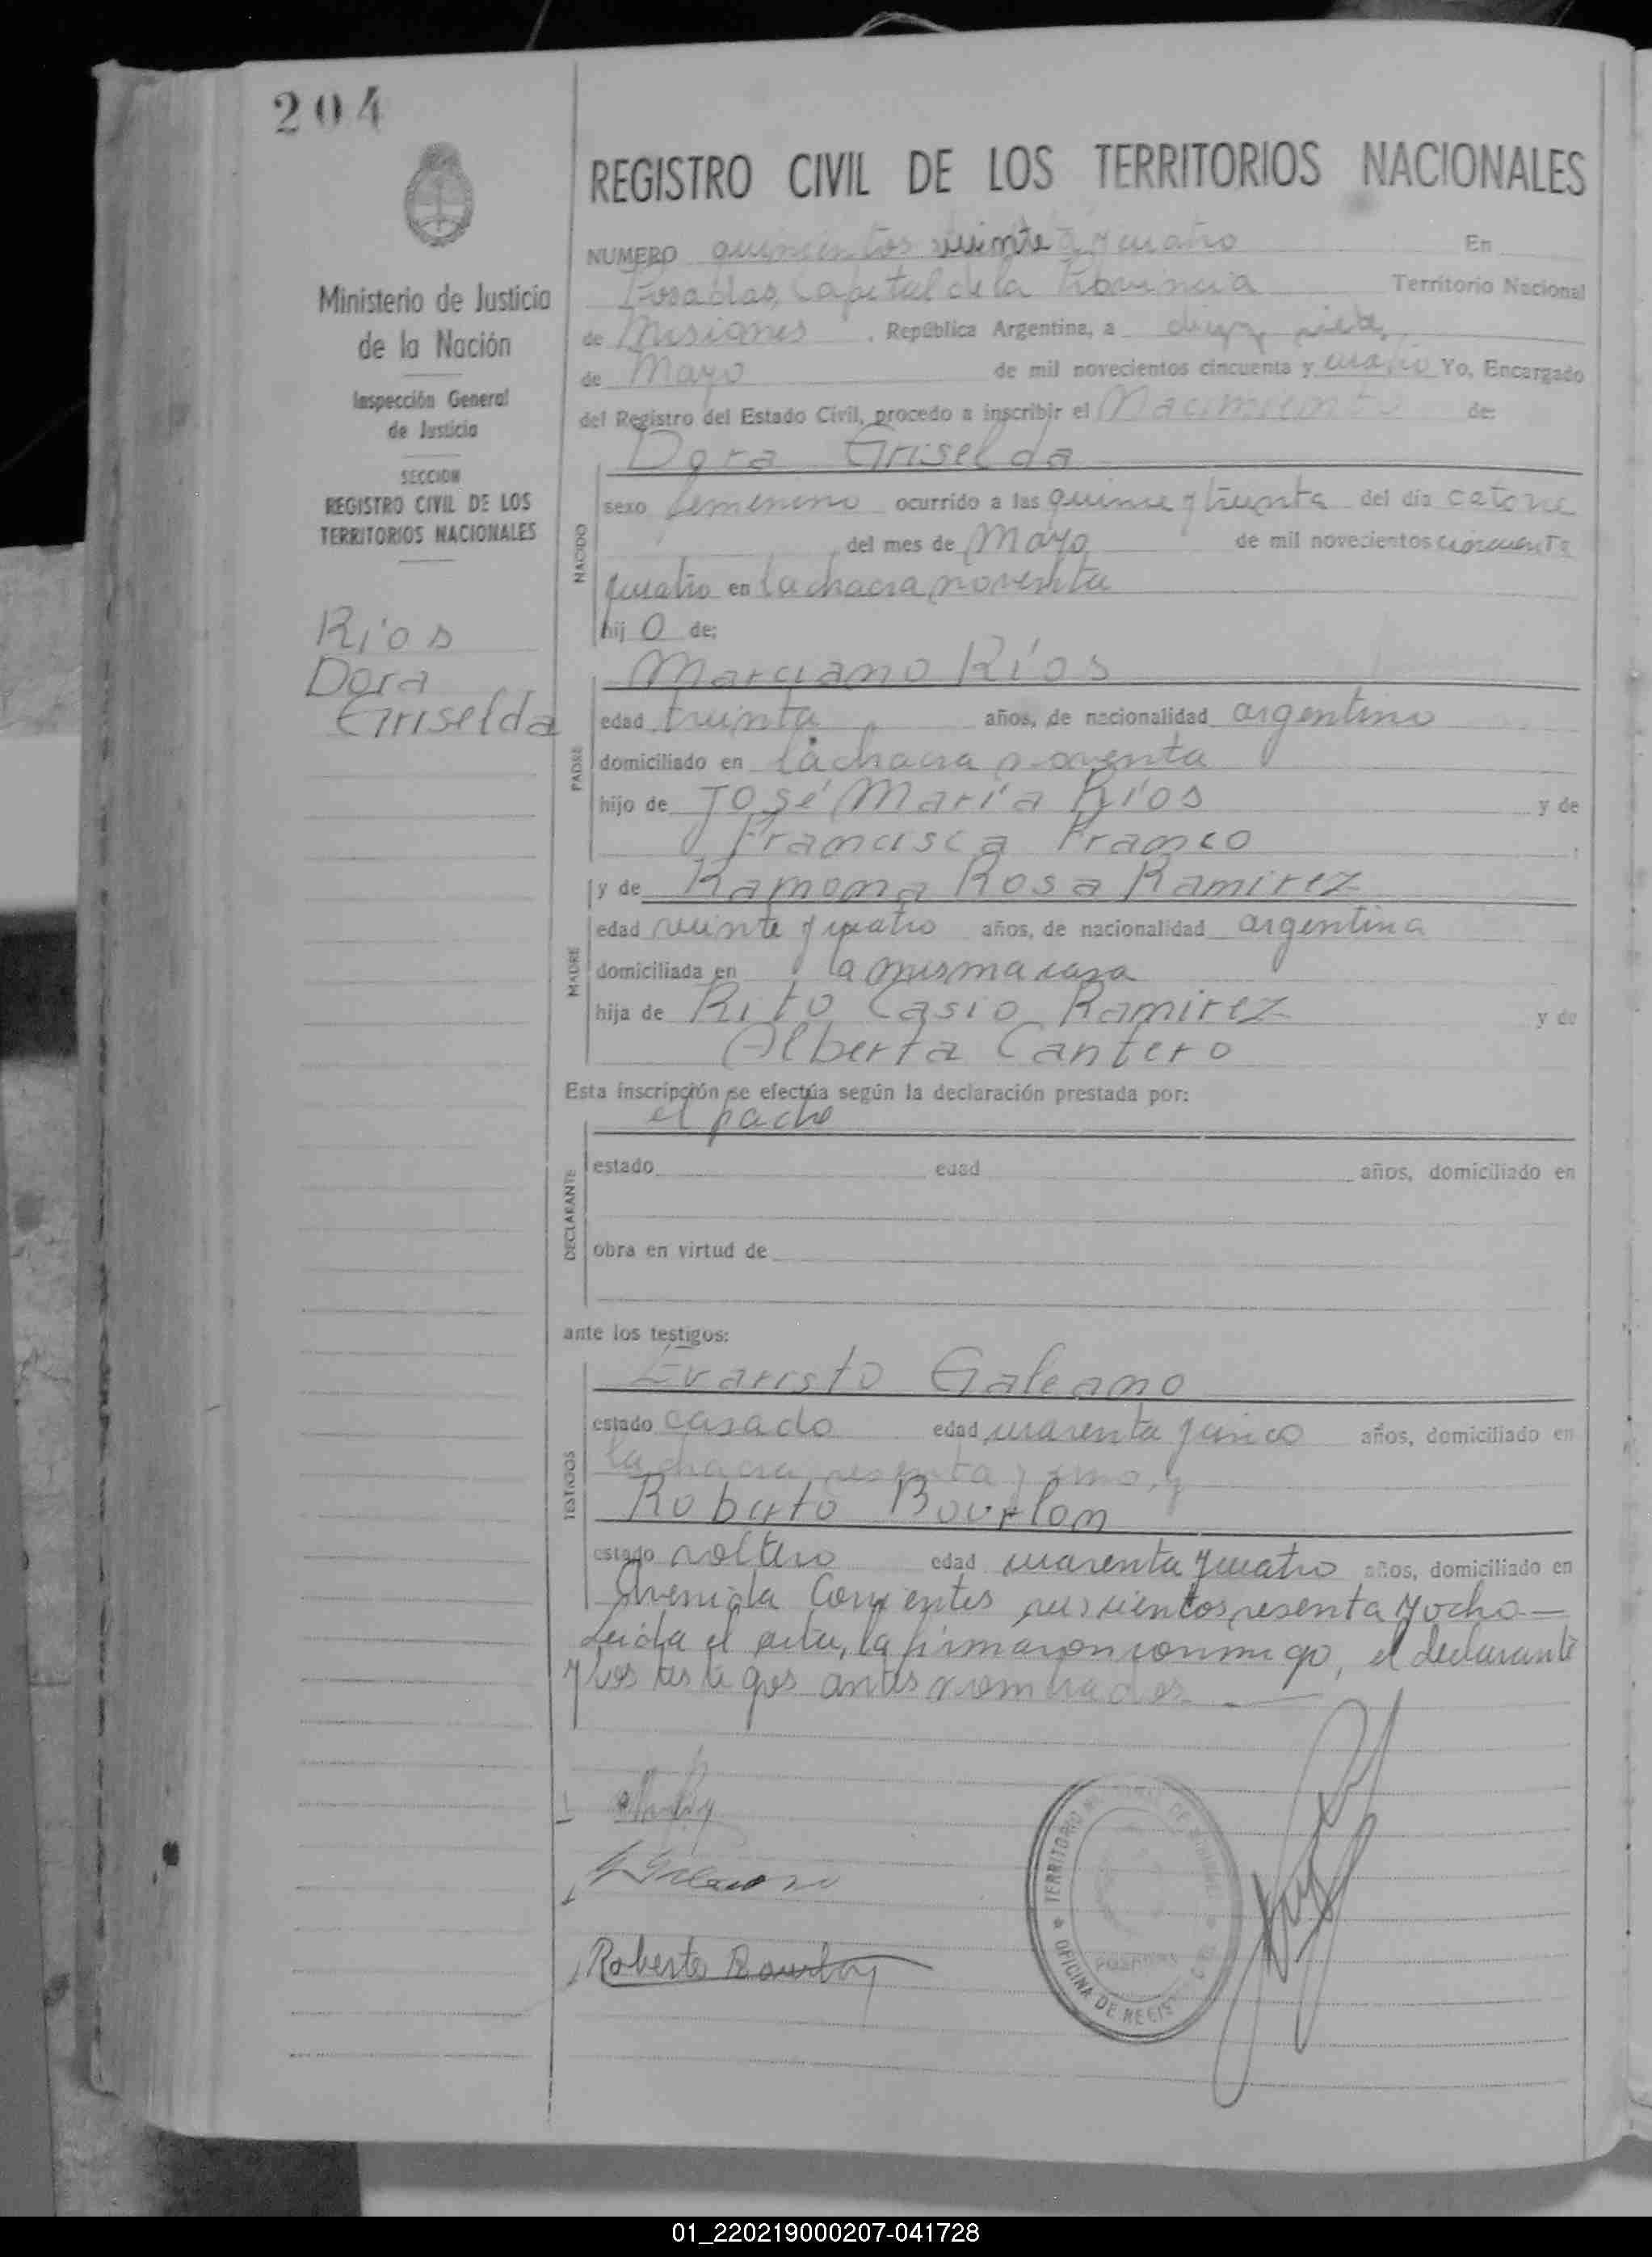 204
REGISTRO CIVIL DE LOS TERRITORIOS NACIONALES
Ministerio de Justicia
de la Nación
Inspección General
de Justicia
SECCION
REGISTRO CIVIL DE LOS
TERRITORIOS NACIONALES
Ríos
Dora
Griselda
NUMERO quinientos veinte y cuatro En
Posadas, Capital de la Provincia Territorio Nacional
de Misiones , República Argentina, a diez y siete
de Mayo de mil novecientos cincuenta y cuatro Yo, Encargado
del Registro del Estado Civil, procedo a inscribir el Nacimiento de:
Dora Griselda
NACIDO
sexo femenino ocurrido a las quince y treinta del día catorce
del mes de Mayo de mil novecientos cincuenta
y cuatro en la chacra noventa
hij o de;
Marciano Ríos
PADRE
edad treinta años, de nacionalidad argentino
domiciliado en la chacra noventa
hijo de José María Ríos y de
Francisca Franco
y de Ramona Rosa Ramirez
MADRE
edad veinte y cuatro años, de nacionalidad argentina
domiciliada en la misma casa
hija de Rito Casio Ramirez y de
Alberta Cantero
Esta inscripción se efectúa según la declaración prestada por:
el padre
DECLARANTE
estado edad años, domiciliado en
obra en virtud de
ante los testigos:
Evaristo Galeano
TESTIGOS
estado casado edad cuarenta y cinco años, domiciliado en
la chacra sesenta y uno, y
Roberto Bourlon
estado soltero edad cuarenta y cuatro años, domiciliado en
Avenida Corrientes seiscientos sesenta y ocho —
Leída el acta, la firmaron conmigo, el declarante
y los testigos antes nombrados. —
E Galeano
Roberto Bourlon
TERRITORIO NACIONAL DE MISIONES
POSADAS
OFICINA DE REGISTRO CIVIL
01_220219000207-041728